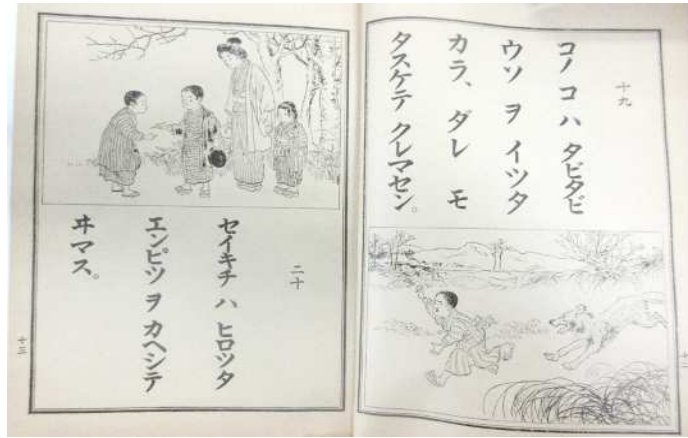 十九
コノ コ ハ タビタビ
ウソ ヲ イツタ
カラ、ダレ モ
タスケテ クレマセン。
二十
セイキチ ハ ヒロツタ
エンピツ ヲ カヘシテ
ヰマス。
十三